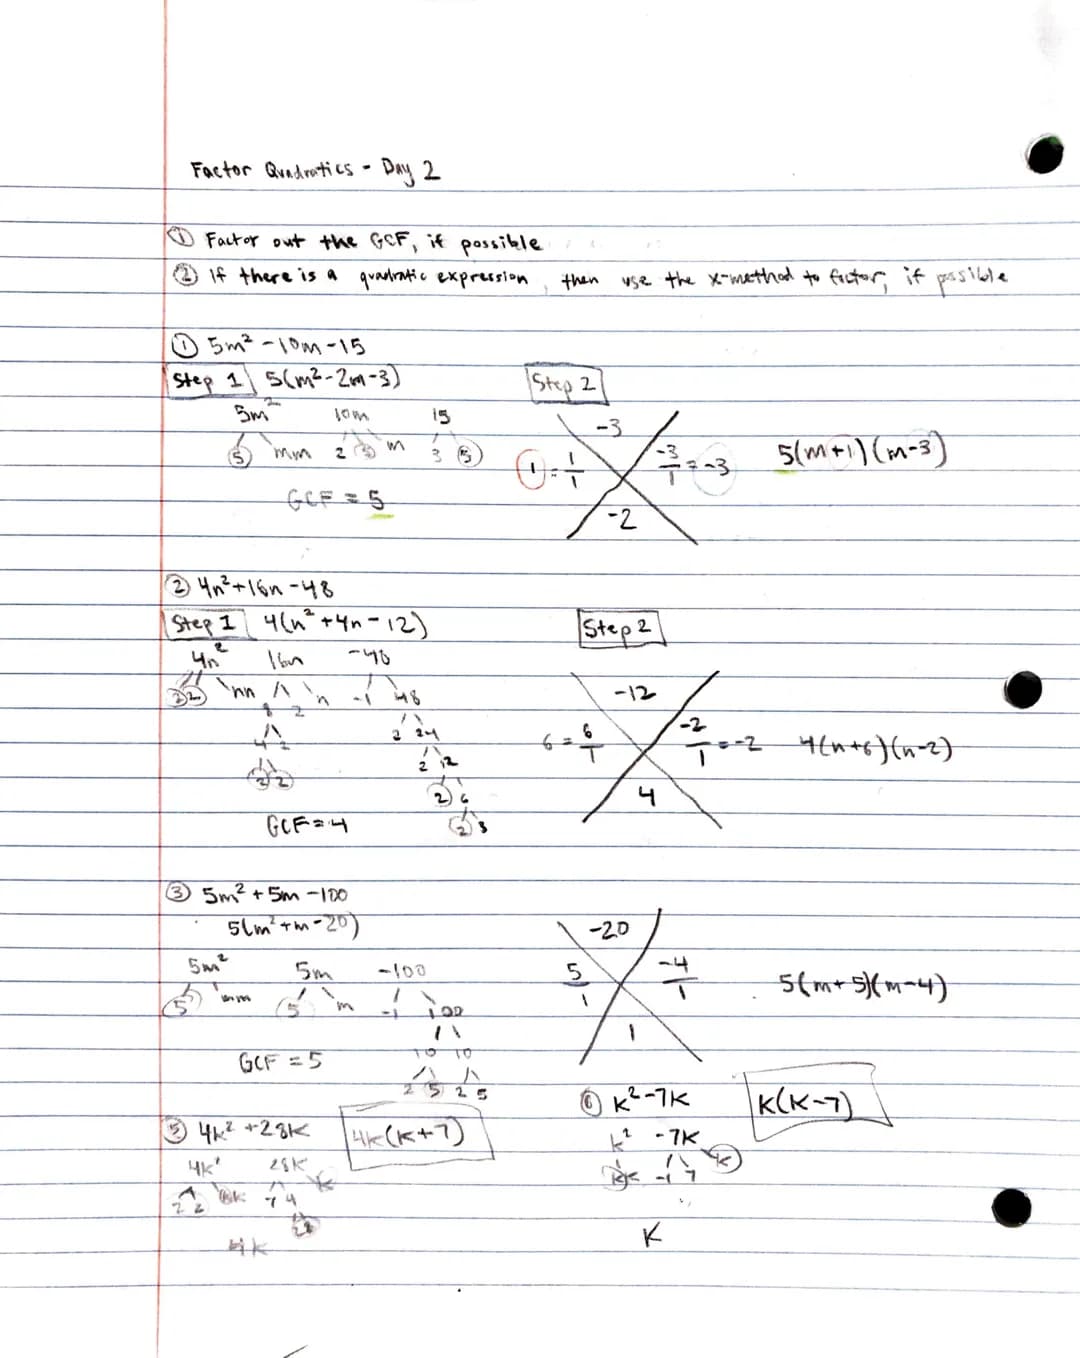 Factor Quadratics - Day 2
① Factor out the GCF, if possible
② If there is a quadratic expression, then use the x-method to factor, if possible
① 5m² - 10m - 15
Step 1 5(m² - 2m - 3)
Step 2
5m² 10m 15
5 mm 2 5 m 3 5
GCF = 5
-3
1 = 1/1 -3/1 = -3
-2
5(m+1)(m-3)
② 4n² + 16n - 48
Step 1 4(n² + 4n - 12)
Step 2
4n² 16n -48
2 2 nn 8 2 n -1 48
4 2 2 24
2 2 2 12
2 6
2 3
GCF = 4
-12
6 = 6/1 -2/1 = -2
4
4(n+6)(n-2)
③ 5m² + 5m - 100
5(m² + m - 20)
5m² 5m -100
5 mm 5 m -1 100
10 10
2 5 2 5
GCF = 5
-20
5/1 -4/1
1
5(m+5)(m-4)
⑤ 4k² + 28k 4k(k+7)
4k² 28k
2 2 kk 7 4 k
2 2
4k
⑥ k² - 7k k(k-7)
k² -7k
kk -1 7 k
k